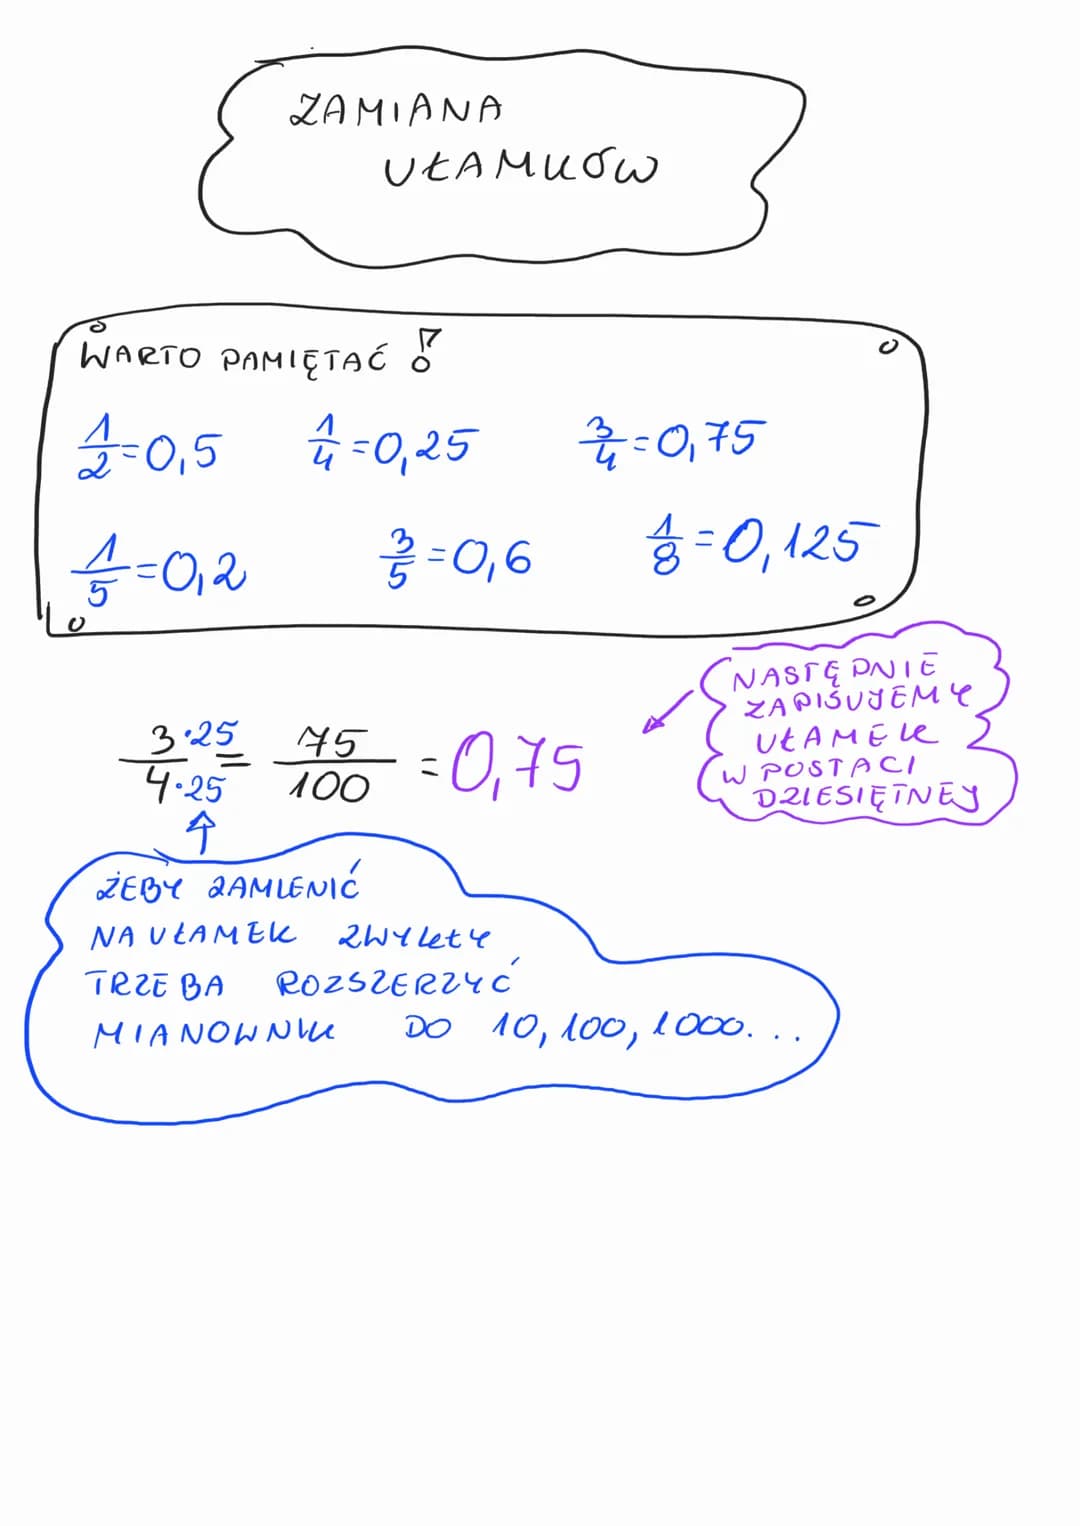 ZAMIANA
UŁAMKÓW
WARTO PAMIĘTAĆ !
1/2 = 0,5 1/4 = 0,25 3/4 = 0,75
1/5 = 0,2 3/5 = 0,6 1/8 = 0,125
NASTĘPNIE
ZAPISUJEMY
UŁAMEK
W POSTACI
DZIESIĘTNEJ
3·25/4·25 = 75/100 = 0,75
ŻEBY ZAMIENIĆ
NA UŁAMEK ZWYKŁY
TRZEBA ROZSZERZYĆ
MIANOWNIK DO 10, 100, 1000...